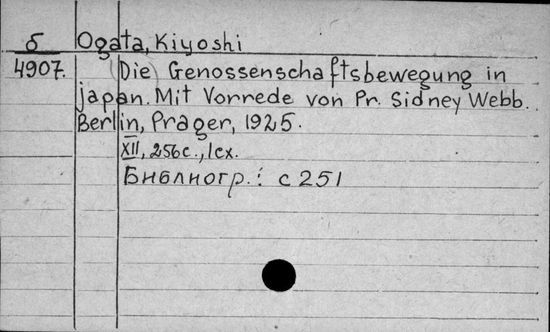 б Ogata, Kiyoshi
4907. (Die) Genossenschaftsbewegung in
Japan. Mit Vorrede von Pr. Sidney Webb.
Berlin, Prager, 1925.
XII, 256 с., 1 сх.
Библиогр.: с 251